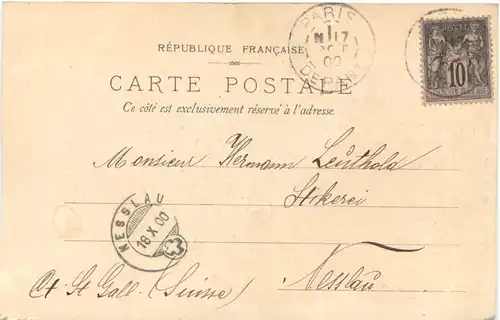 PARIS
17
00
DEPART
POSTE
10
RÉPUBLIQUE FRANÇAISE
CARTE POSTALE
Ce côté est exclusivement réservé à l'adresse
Monsieur Hermann Leuthold
Stikerei
NESSLAU
18 X 00
Nesslau
Ct. St Gall. (Suisse)